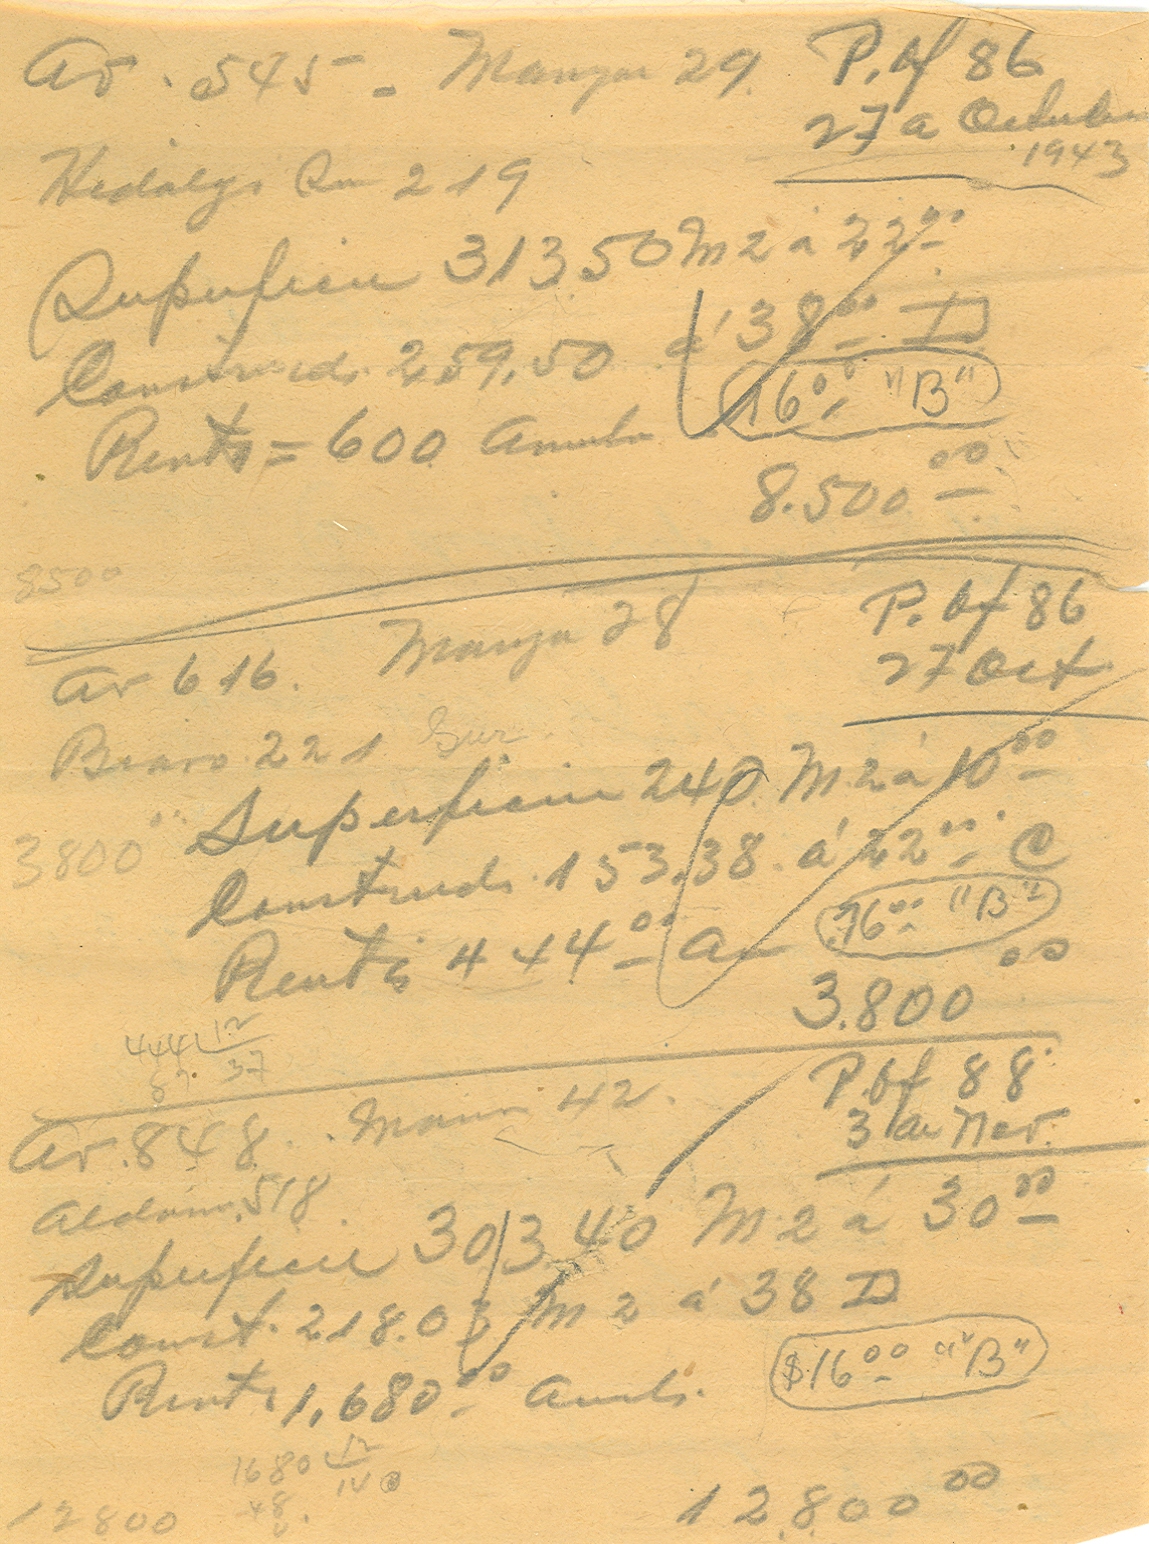 Av. 545 - Manza 29. P. of 86
27 a Octubre
1943
Hidalgo Sur 219
Superficie 313.50 M2 á 22.00
Construida 259.50 á 38.00 D
16.00 "B"
Renta = 600 Anual
8.500.00
8500
Av 616. Manza 28 P. of 86
27 Oct
Bravo 221 Sur
Superficie 240. M2 á 10.00
3800.00
Construida. 153.38. á 22.00 C
16.00 "B"
Renta 444.00 A
3.800.00
444 12
87. 37
Av. 848. Manza 42. P. of 88
3 de Nov.
Aldama. 518.
Superficie 303.40 M2 á 30.00
Const. 218.03 M2 á 38 D
$16.00 "B"
Renta 1,680.00 Anual.
1680 12
48. 140
0.
12800 12.800.00